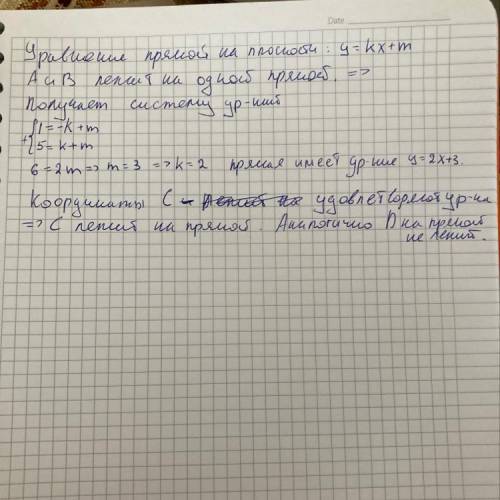 Date
Уравнение прямой на плоскости: y = kx+m
A и B лежит на одной прямой. =>
Получает систему ур-ний
{1=-k+m
+{5=k+m
6=2m => m=3 => k=2 прямая имеет ур-ние y=2x+3.
Координаты C - лежит на удовлетворяют ур-ю
=> C лежит на прямой. Аналогично D на прямой
не лежит.